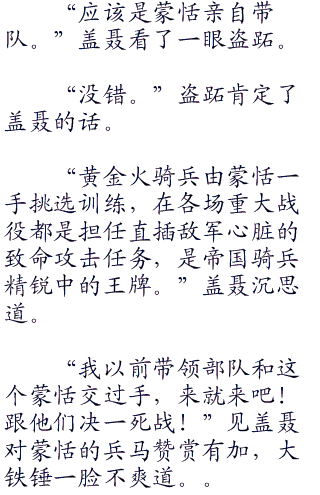 “应该是蒙恬亲自带
队。”盖聂看了一眼盗跖。
“没错。”盗跖肯定了
盖聂的话。
“黄金火骑兵由蒙恬一
手挑选训练，在各场重大战
役都是担任直插敌军心脏的
致命攻击任务，是帝国骑兵
精锐中的王牌。”盖聂沉思
道。
“我以前带领部队和这
个蒙恬交过手，来就来吧！
跟他们决一死战！”见盖聂
对蒙恬的兵马赞赏有加，大
铁锤一脸不爽道。。